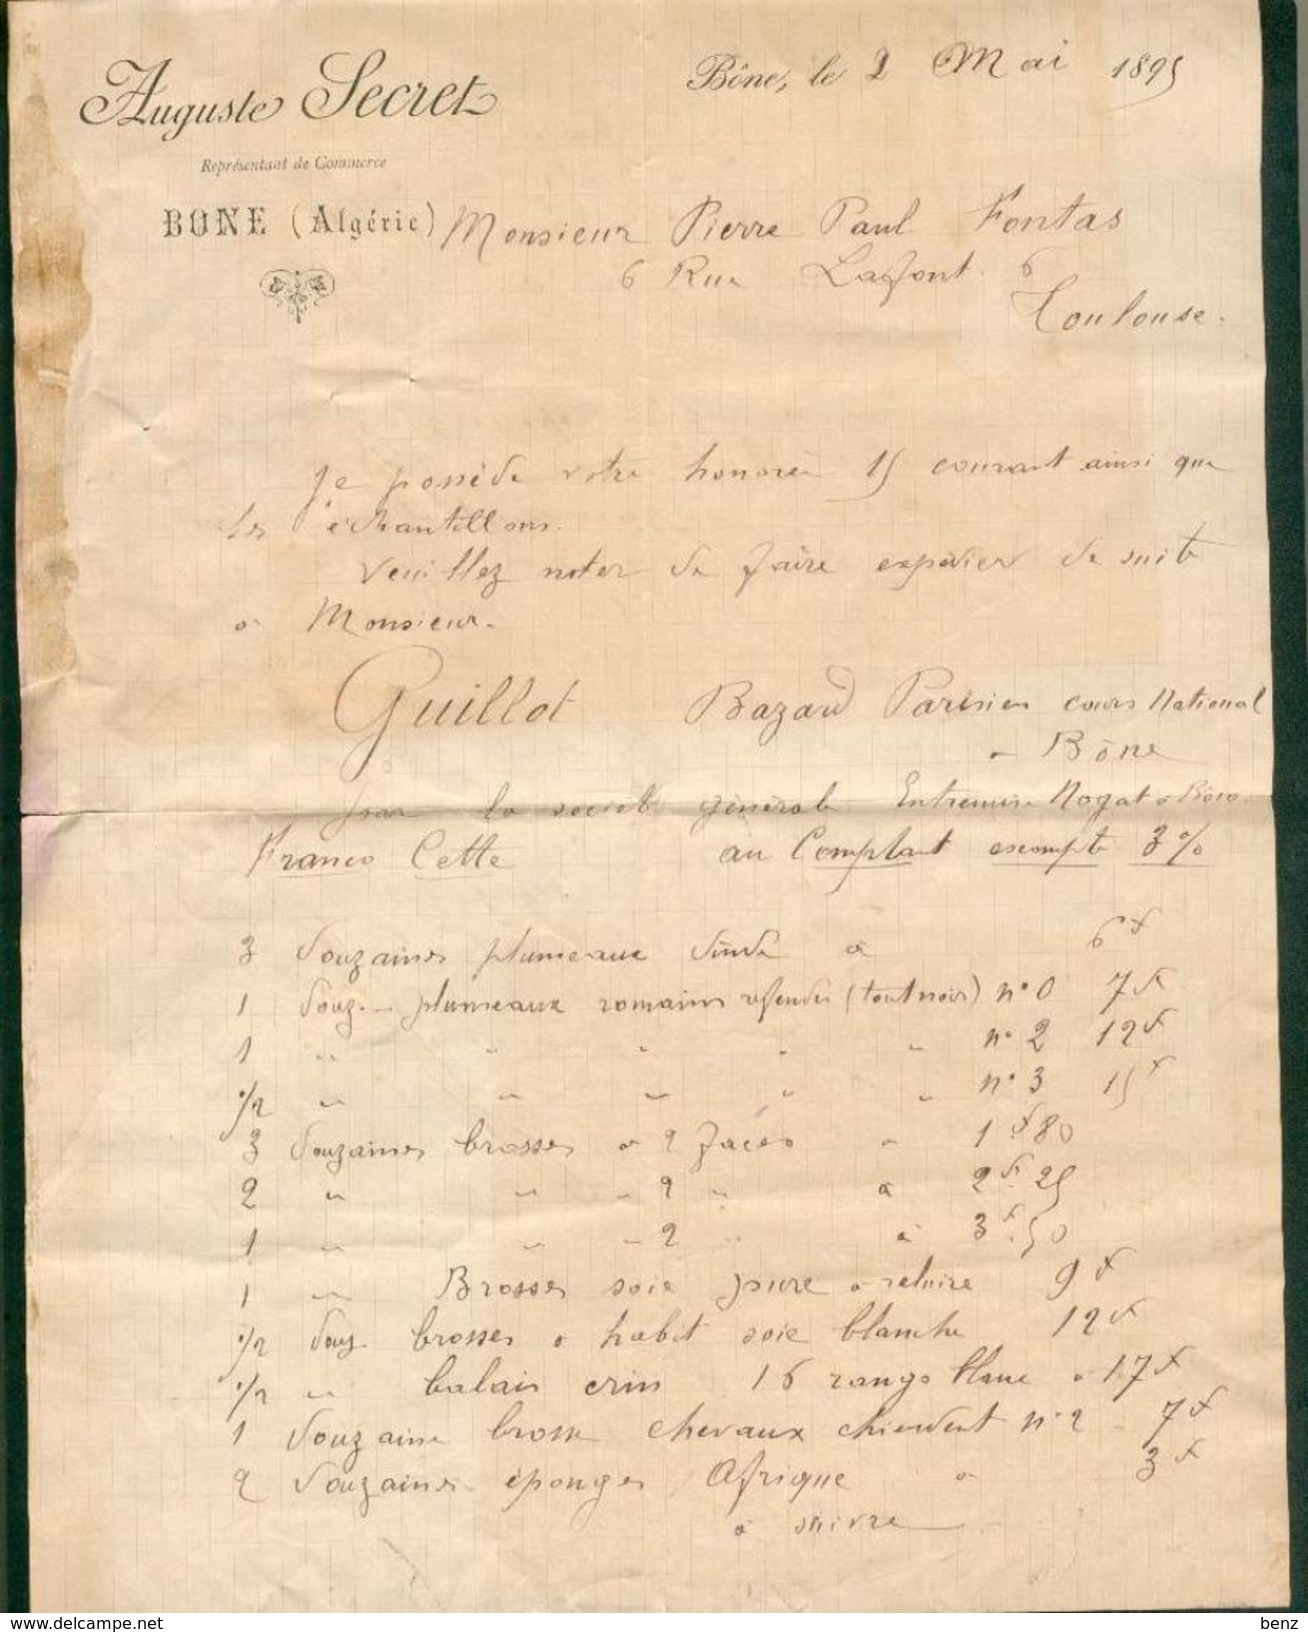 Auguste Secret
Représentant de Commerce
BONE (Algérie)
Bône, le 2 Mai 1895
Monsieur Pierre Paul Fontas
6 Rue Lafont 6
Toulouse.
Je possède votre honorée 15 courant ainsi que
les échantillons.
Veuillez noter de faire expédier de suite
à Monsieur.
Guillot Bazard Parisien cours National
à Bône
par la société générale Entremise Nogat à Bône
Franco Cette au Comptant escompte 3%
3 douzaines plumeaux dinde à 6 f
1 douz. — plumeaux romains refendus (tout noir) n° 0 7 f
1 " " " " " n° 2 12 f
1/2 " " " " " n° 3 15 f
3 douzaines brosses à 2 faces à 1 f. 80
2 " " " 2 " à 2 f. 25
1 " " " 2 " à 3 f. 50
1 " Brosses soie pure à reluire 9 f
1/2 douz. brosses à habit soie blanche 12 f
1/2 " balais crin 16 rangs blanc à 17 f
1 douzaine brosse chevaux chiendent n° 2 7 f
2 douzaines éponges Afrique à 3 f
à suivre
www.delcampe.net
benz